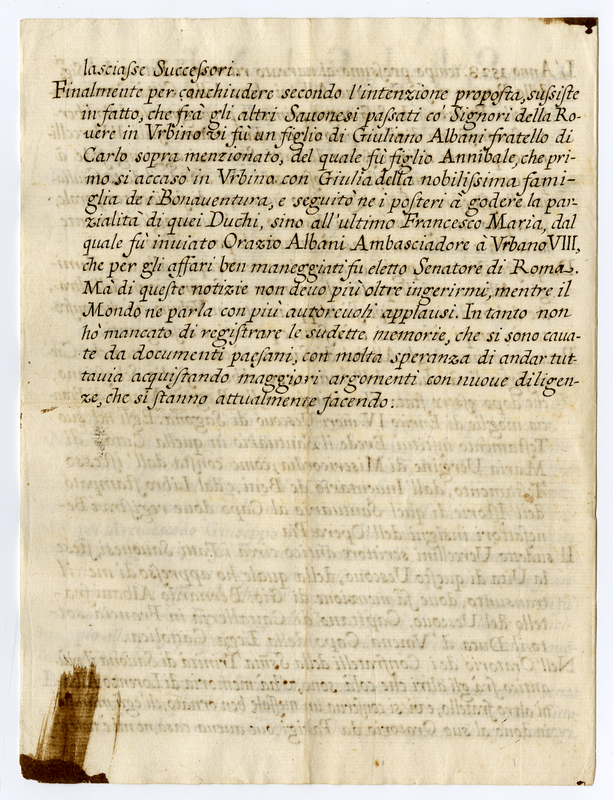 lasciasse Successori.
Finalmente per conchiudere secondo l'intenzione proposta, sussiste
in fatto, che frà gli altri Sauonesi passati co' Signori della Ro-
uere in Vrbino vi fù un figlio di Giuliano Albani fratello di
Carlo sopra menzionato, del quale fù figlio Annibale, che pri-
mo si accasò in Vrbino con Giulia della nobilissima fami-
glia de i Bonauentura, e seguitò ne i posteri à godere la par-
zialità di quei Duchi, sino all'ultimo Francesco Maria, dal
quale fù inuiato Orazio Albani Ambasciadore à Vrbano VIII,
che per gli affari ben maneggiati fu eletto Senatore di Roma.
Mà di queste notizie non deuo più oltre ingerirmi, mentre il
Mondo ne parla con più autoreuoli applausi. In tanto non
hò mancato di registrare le sudette memorie, che si sono caua-
te da documenti paesani, con molta speranza di andar tut-
tauia acquistando maggiori argomenti con nuoue diligen-
ze, che si stanno attualmente facendo.